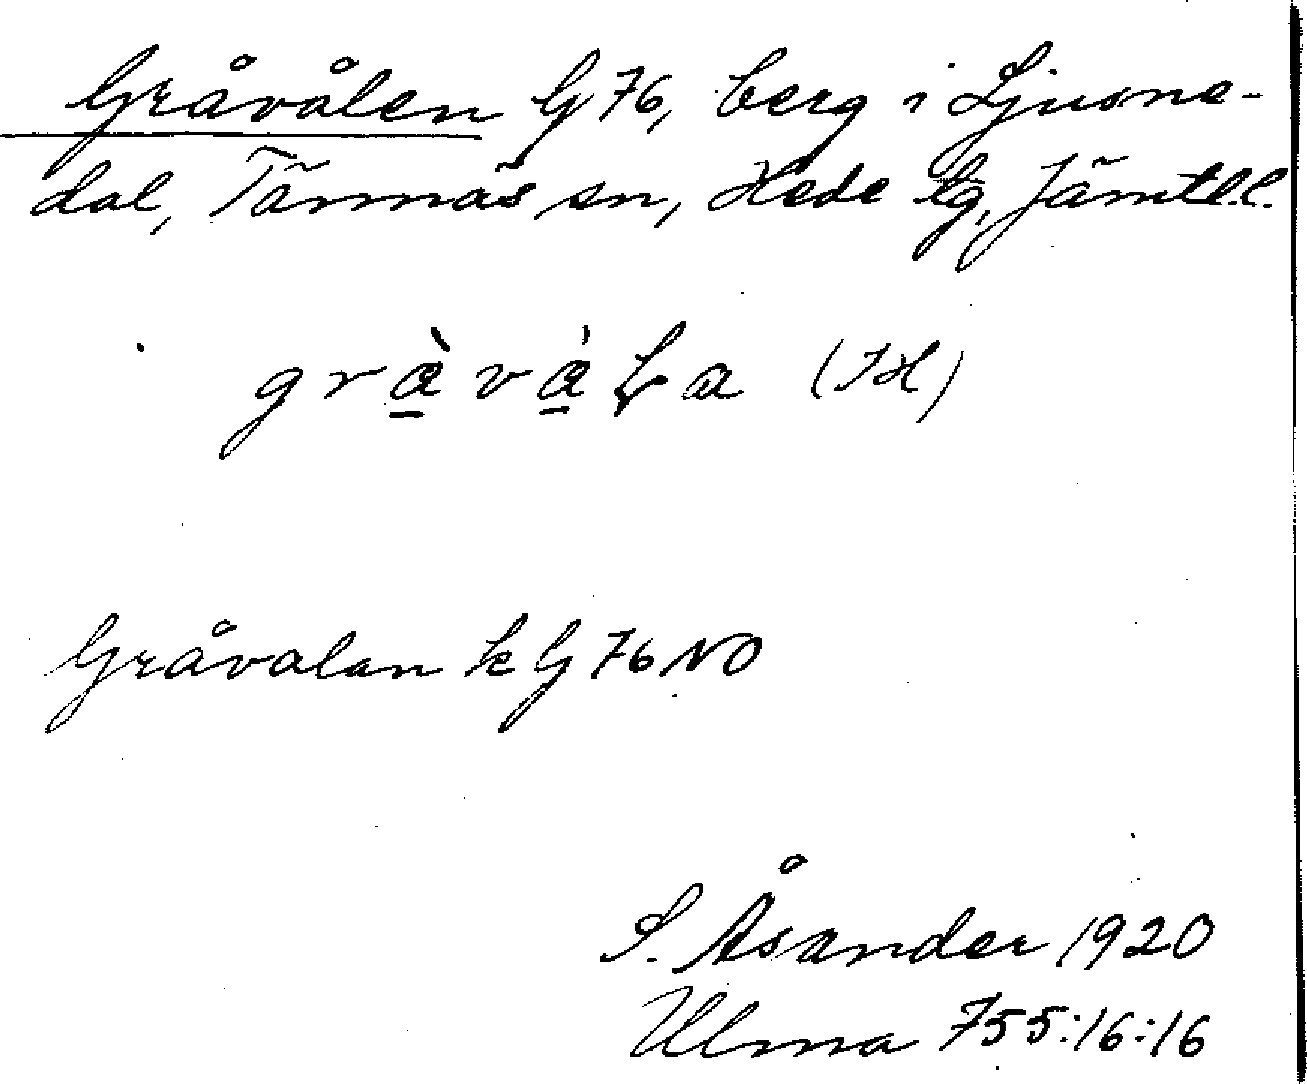 Gråvålen G 76, berg i Ljusne-
dal, Tännäs sn, Hede tg, Jämtl.l.
Gråvalan k G 76 NO
S. Åsander 1920
Ulma 755:16:16